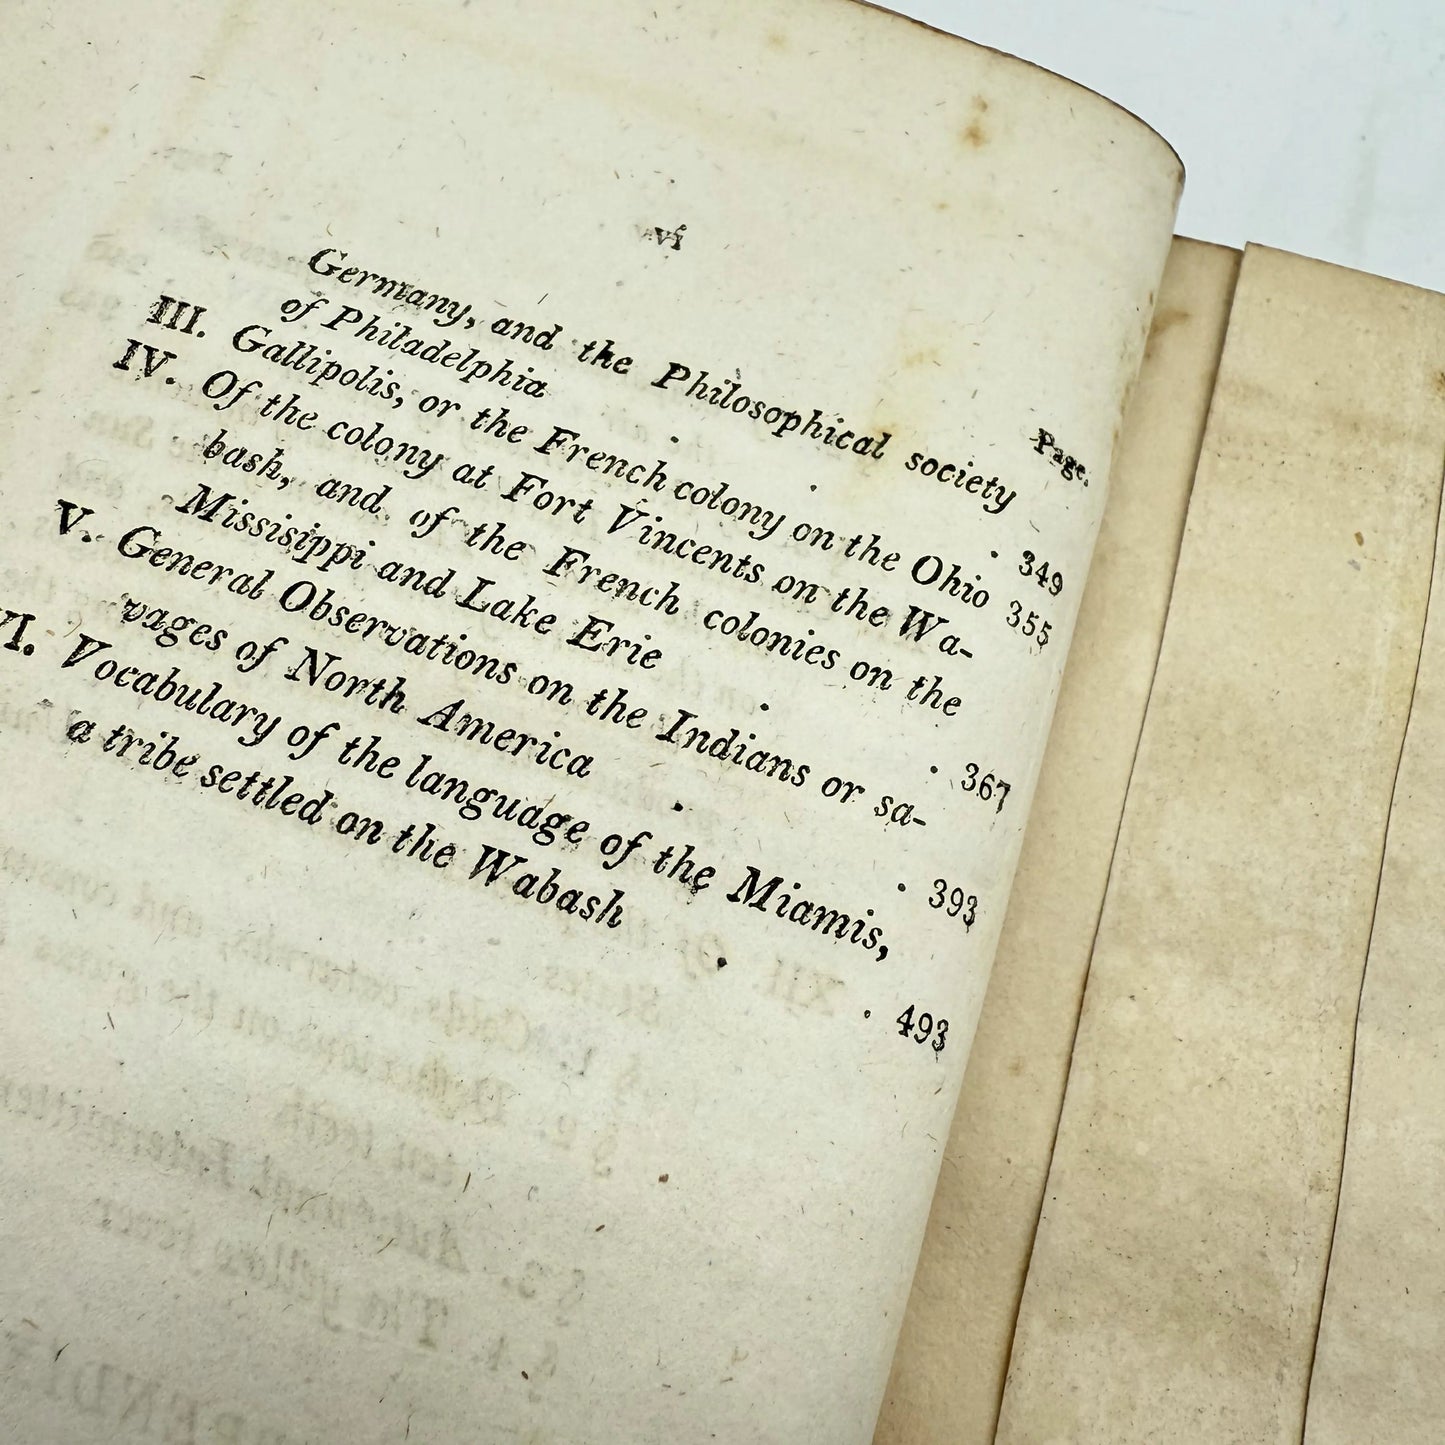 vi
Page.
Germany, and the Philosophical society
of Philadelphia . . . 349
III. Gallipolis, or the French colony on the Ohio 355
IV. Of the colony at Fort Vincents on the Wa-
bash, and of the French colonies on the
Missisippi and Lake Erie . . 367
V. General Observations on the Indians or sa-
vages of North America . . 393
VI. Vocabulary of the language of the Miamis,
a tribe settled on the Wabash . . 493